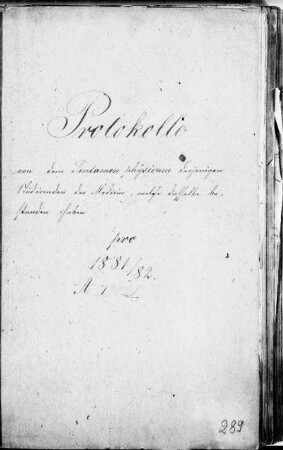 Protokolle
von dem Tentamen physicum derjenigen
Studirenden der Medicin, welche dasselbe be-
standen haben
pro
1881/82.
289